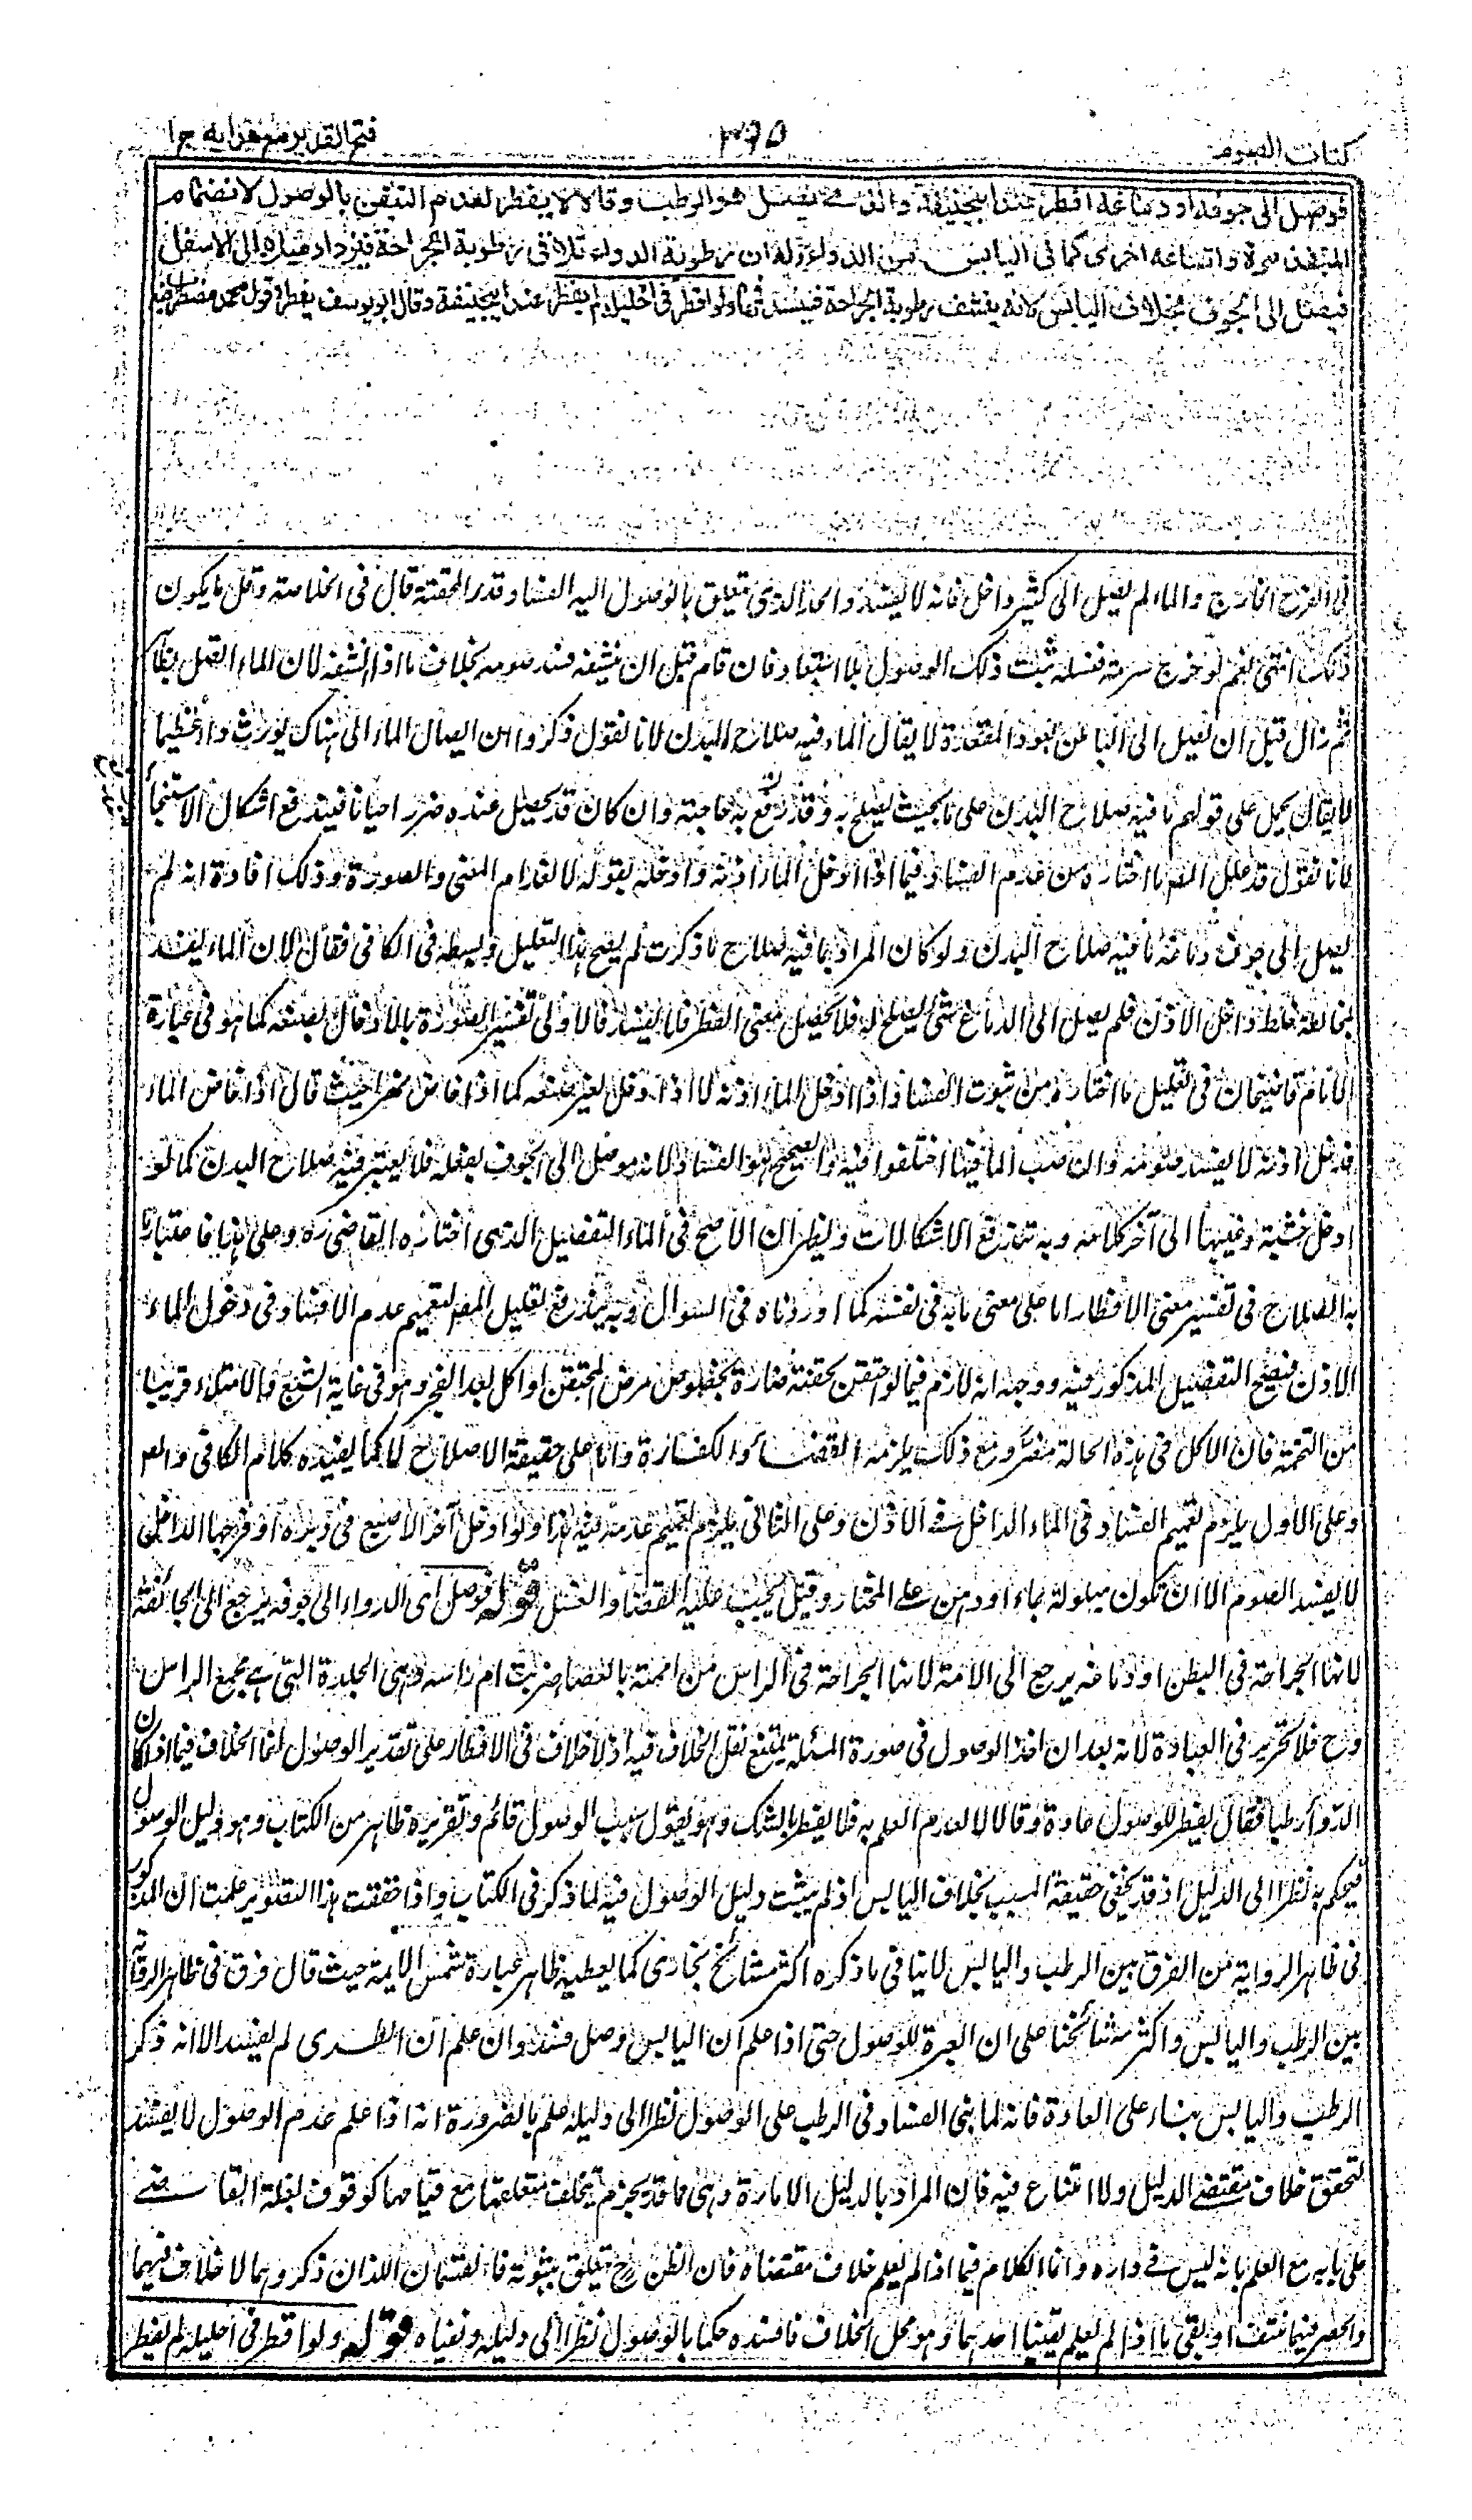 كتاب الصوم
٢٦٥
فتح القدير مع هدايه ج ا
فوصل الى جوفه او دماغه افطر عند ابيحنيفة والذى يصل هو الرطب وقالا لا يفطر لعدم التيقن بالوصول لانضمام
المنفذ مرة واتساعه اخرى كما فى اليابس من الدواء وله ان رطوبة الدواء تلاقى رطوبة الجراحة فيزداد ميلا الى الاسفل
فيصل الى الجوف بخلاف اليابس لانه ينشف رطوبة الجراحة فينسد فمها ولو اقطر فى احليله لم يفطر عند ابيحنيفة وقال ابو يوسف يفطر وقول محمد مضطرب فيه
فى الفرج الخارج والماء لم يصل الى كثير داخل فانه لا يفسد والحد الذى يتعلق بالوصول اليه الفساد قدر المحقنة قال فى الخلاصة وقل ما يكون
ذلك انتهى نعم لو خرج سرمه فغسله ثبت ذلك الوصول بلا استبعاد فان قام قبل ان ينشفه فسد صومه بخلاف ما اذا نشفه لان الماء اتصل بظاهر
ثم زال قبل ان يصل الى الباطن بعود المقعدة لا يقال الماء فيه صلاح البدن لانا نقول ذكروا ان ايصال الماء الى هناك يورث داء عظيما
لا يقال يحمل على قولهم ما فيه صلاح البدن على ما بحيث يصلح به وتندفع به حاجته وان كان قد يحصل عنده ضرر احيانا فيندفع اشكال الاستنجاء
لانا نقول قد علل المصـ ما اختاره من عدم الفساد فيما اذا ادخل الماء اذنه او ادخله بقوله لانعدام المعنى والصورة وذلك افادة انه لم
يصل الى جوف دماغه ما فيه صلاح البدن ولو كان المراد بما فيه صلاح ما ذكرت لم يصح هذا التعليل وبسطه فى الكافى فقال لان الماء يفسد
بمخالطة خلط داخل الاذن فلم يصل الى الدماغ شئ يصلح له فلا يحصل معنى الفطر فلا يفسد فالاولى تفسير الصورة بالادخال بصنعه كما هو فى عبارة
الامام قاضيخان فى تعليل ما اختاره من ثبوت الفساد اذا ادخل الماء اذنه لا اذا دخل بغير صنعه كما اذا خاض نهرا حيث قال اذا خاض الماء
فدخل اذنه لا يفسد صومه وان صب الماء فيها اختلفوا فيه والصحيح هو الفساد لانه موصل الى الجوف بفعله فلا يعتبر فيه صلاح البدن كما لو
ادخل خشبة وغيبها الى آخر كلامه وبه تندفع الاشكالات ويظهر ان الاصح فى الماء التفصيل الذى اختاره القاضى ره وعلى هذا فاعتبار ما
به الصلاح فى تفسير معنى الافطار اما على معنى ما به فى نفسه كما اوردناه فى السوال وبه يندفع تعليل المصـ لتعميم عدم الافساد فى دخول الماء
الاذن فيصح التفصيل المذكور فيه ووجهه انه لازم فيما لو احتقن بحقنة ضارة بخصوص مرض المحتقن او اكل بعد الفجر وهو فى غاية الشبع والامتلاء قريبا
من التخمة فان الاكل فى هذه الحالة مضر ومع ذلك يلزمه القضاء والكفارة واما على حقيقة الاصلاح لا كما يفيده كلام الكافى والمصـ
وعلى الاول يلزم تعميم الفساد فى الماء الداخل فى الاذن وعلى الثانى يلزم تعميم عدمه فيه هذا ولو ادخل آخر الاصبع فى دبره او فرجها الداخل
لا يفسد الصوم الا ان تكون مبلولة بماء او دهن على المختار وقيل يجب عليه القضاء والغسل قوله فوصل اى الدواء الى جوفه يرجع الى الجائفة
لانها الجراحة فى البطن او دماغه يرجع الى الآمة لانها الجراحة فى الراس من اممته بالعصا ضربت ام راسه وهى الجلدة التى هى مجمع الراس
وح فلا تحرير فى العبادة لانه بعد ان اخذ الوصول فى صورة المسئلة يمتنع نقل الخلاف فيه اذ لا خلاف فى الافطار على تقدير الوصول انما الخلاف فيما اذا كان
الدواء رطبا فقال يفطر للوصول عادة وقالا لا لعدم العلم به فلا يفطر بالشك وهو يقول سبب الوصول قائم وتقريره ظاهر من الكتاب وهو دليل الوصول
فيحكم به نظرا الى الدليل اذ قد يخفى حقيقة المسبب بخلاف اليابس اذ لم يثبت دليل الوصول فيه لما ذكر فى الكتاب واذا حققت هذا التصوير علمت ان المذكور
فى ظاهر الرواية من الفرق بين الرطب واليابس لا ينافى ما ذكره اكثر مشائخ بخارى كما يعطيه ظاهر عبارة شمس الايمة حيث قال فرق فى ظاهر الرواية
بين الرطب واليابس واكثر مشائخنا على ان العبرة للوصول حتى اذا علم ان اليابس وصل فسد وان علم ان الطرى لم يفسد الا انه ذكر
الرطب واليابس بناء على العادة فانه لما بنى الفساد فى الرطب على الوصول نظرا الى دليله علم بالضرورة انه اذا علم عدم الوصول لا يفسد
لتحقق خلاف مقتضى الدليل ولا امتناع فيه فان المراد بالدليل الامارة وهى مما قد يجزم بتخلف متعلقها مع قيامها كوقوف بغلة القاضى
على بابه مع العلم بانه ليس فى داره وانما الكلام فيما اذا لم يعلم خلاف مقتضاه فان الظن ح يتعلق بثبوته فالقسمان اللذان ذكروهما لا خلاف فيهما
والحصر فيهما منتف اذ بقى ما اذا لم يعلم يقينا احدهما وهو محل الخلاف فافسده حكما بالوصول نظرا الى دليله ونفياه قوله ولو اقطر فى احليله لم يفطر